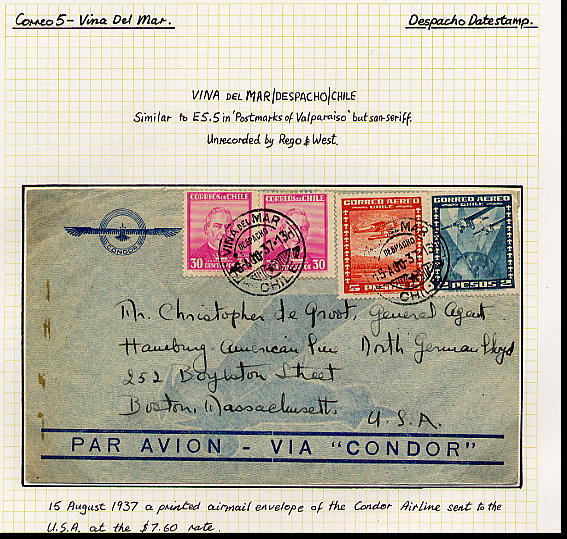 Correo 5 - Vina Del Mar.
Despacho Datestamp.
VINA DEL MAR/DESPACHO/CHILE
Similar to E5.5 in 'Postmarks of Valparaiso' but san-seriff.
Unrecorded by Rego & West.
CORREOS DE CHILE
CORREOS DE CHILE
CORREO AEREO
CHILE
CORREO AEREO
CHILE
CONDOR
VINA DEL MAR
DESPACHO
15 AGO 37-13
CHILE
30
30
5 PESOS
PESOS 2
Mr. Christopher de Groot, General Agent
Hamburg-American Line North German Lloyd
252 Boylston Street
Boston, Massachusetts
U.S.A.
PAR AVION - VIA "CONDOR"
15 August 1937 a printed airmail envelope of the Condor Airline sent to the
U.S.A. at the $7.60 rate.